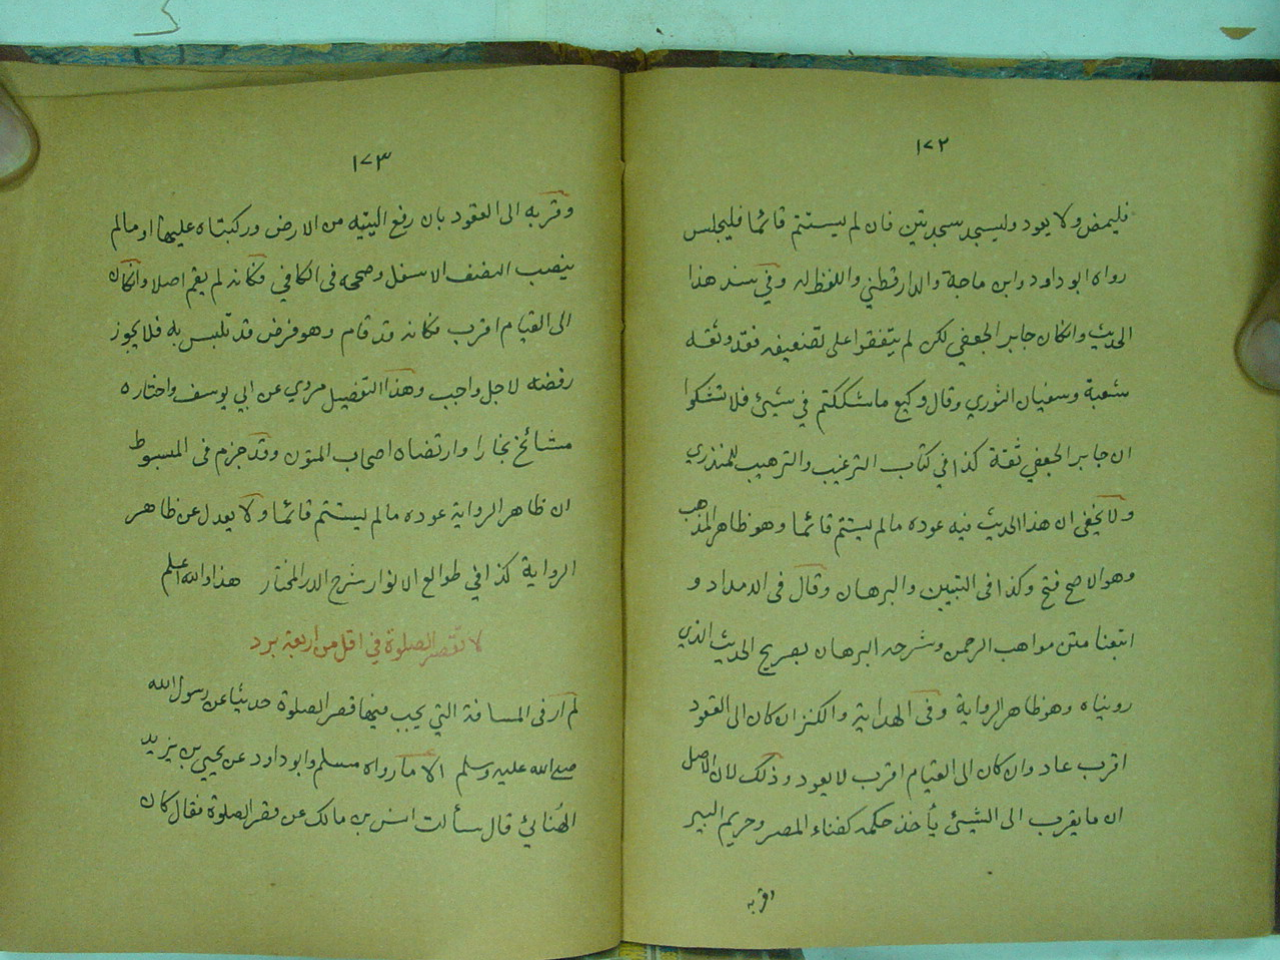 ١٧٢
فليمض ولا يعود وليسجد سجدتين فان لم يستتم قائما فليجلس
رواه ابو داود وابن ماجة والدارقطني واللفظ له وفي سند هذا
الحديث وانكان جابر الجعفي لكن لم يتفقوا على تضعيفه فقد وثقه
شعبة وسفيان الثوري وقال وكيع ما شككتم في شيئ فلا تشكوا
ان جابر الجعفي ثقة كذا في كتاب الترغيب والترهيب للمنذري
ولا يخفى ان هذا الحديث فيه عوده مالم يستتم قائما وهو ظاهر المذهب
وهو الاصح فتح وكذا في التبيين والبرهان وقال في الامداد و
اتبعنا متن مواهب الرحمن وشرحه البرهان بصريح الحديث الذي
رويناه وهو ظاهر الرواية وفي الهداية والكنز ان كان الى القعود
اقرب عاد وان كان الى القيام اقرب لا يعود وذلك لان الاصل
ان ما يقرب الى الشيئ يأخذ حكمه كفناء المصر وحريم البير
وقربه
١٧٣
وقربه الى القعود بان رفع اليتيه من الارض وركبتاه عليها او مالم
ينصب النصف الاسفل وصححه في الكافي فكانه لم يقم اصلا وانكان
الى القيام اقرب فكانه قد قام وهو فرض قد تلبس به فلا يجوز
رفضه لاجل واجب وهذا التفصيل مروي عن ابي يوسف واختاره
مشائخ بخارا وارتضاه اصحاب المتون وقد جزم في المبسوط
ان ظاهر الرواية عوده مالم يستتم قائما ولا يعدل عن ظاهر
الرواية كذا في طوالع الانوار شرح الدر المختار هذا والله اعلم
لا تقصر الصلوة في اقل من أربعة برد
لم أر في المسافة التي يجب فيها قصر الصلوة حديثا عن رسول الله
صلى الله عليه وسلم الا ما رواه مسلم وابو داود عن يحيى بن يزيد
الهُنائي قال سألت انس بن مالك عن قصر الصلوة فقال كان